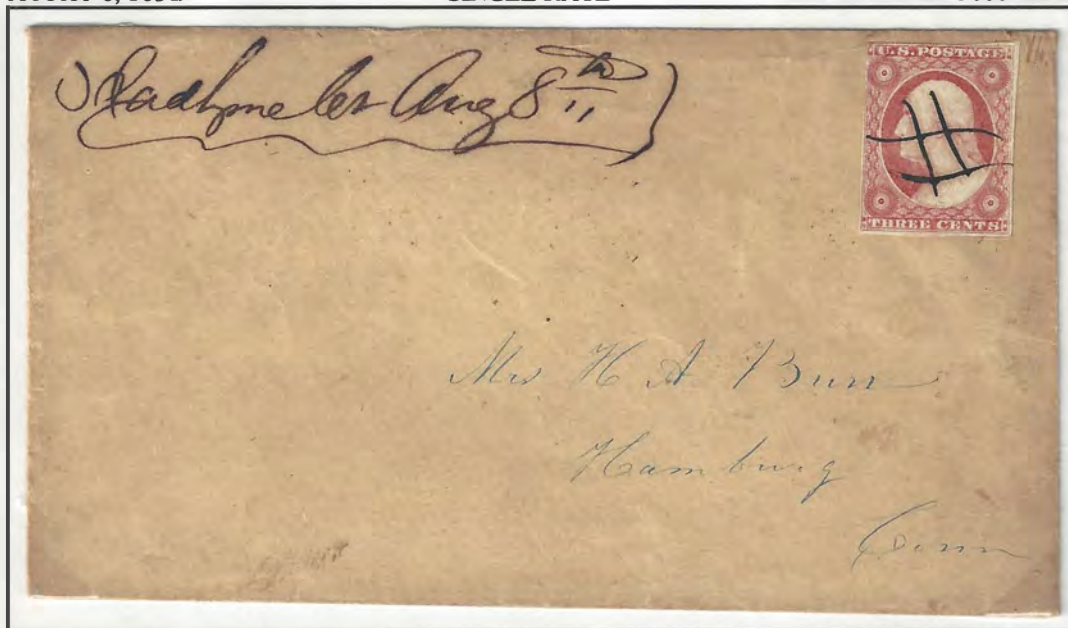 SINGLE RATE
Hadlyme Ct Aug 8th
U.S. POSTAGE
THREE CENTS
Mrs H A Burr
Hamburg
Conn